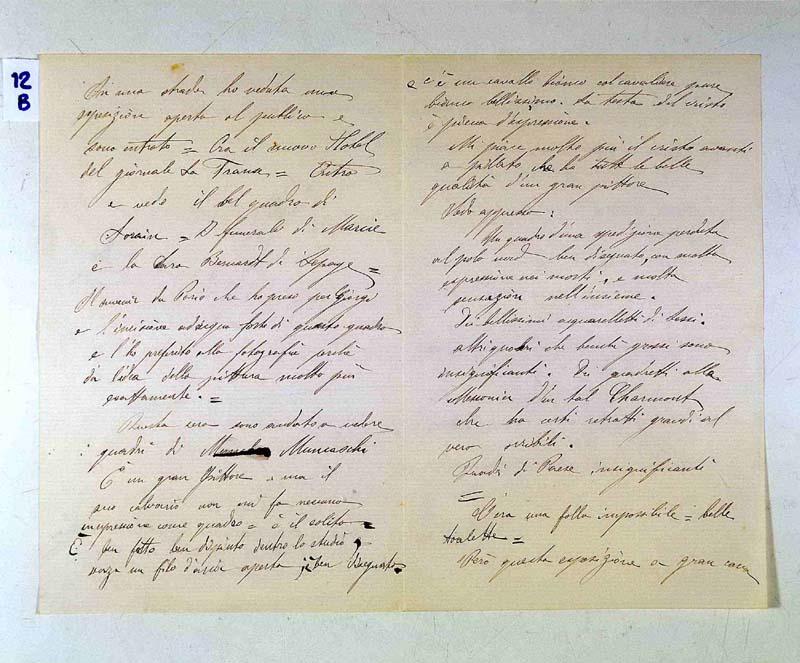 12
B
In una strada ho veduta una
esposizione aperta al publico e
sono intrato = Era il nuovo Hotel
del giornale La France = Entro
e vedo il bel quadro di
= Il funerale di Marcie
e la Sara Bernardt di Lepage =
Il souvenir da Parigi che ho preso per Giorgi
e l'incisione ad acqua forte di questo quadro
e l'ho preferito alla fotografia perchè
dà l'idea della pittura molto più
esattamente. =
Questa sera sono andato a vedere
i quadri di Muncaschi
È un gran Pittore - ma il
suo calvario non mi fa nessuna
impressione come quadro = è il solito =
È ben fatto ben dipinto dentro lo studio
senza un filo d'aria aperta è ben disegnato
e c'è un cavallo bianco col cavaliere pure
bianco bellissimo. La testa del cristo
è piena d'espressione.
Mi piace molto più il cristo avanti
a Pillato che ha tutte le belle
qualità d'un gran pittore
Vedo appresso:
Un quadro d'una spedizione perduta
al polo nord ben disegnato, con molta
espressione nei morti, e molta
sensazione nell'insieme.
Dei bellissimi acquarelletti di
altri quadri che benchè grossi sono
insignificanti. Dei quadretti alla
Messonier d'un tal Charmont
che ha certi retratti grandi al
vero orribili.
Quadri di Paese insignificanti
=
C'era una folla impossibile = belle
toalette =
Però questa esposizione a gran cassa